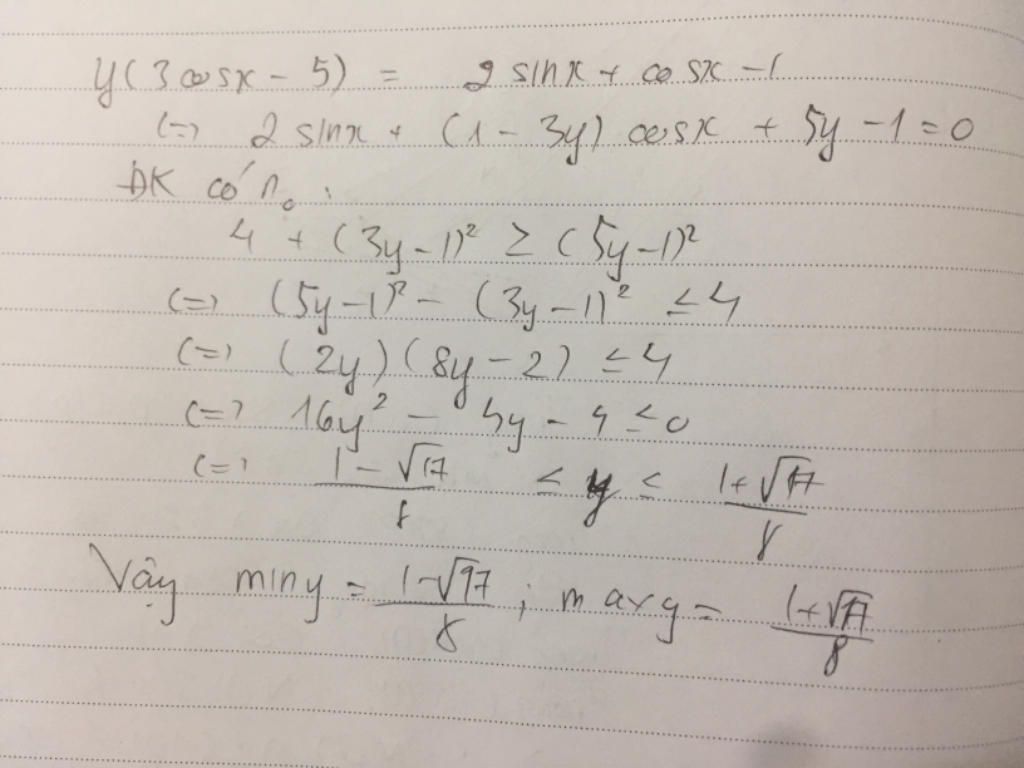 y(3cosx - 5) = 2sinx + cosx - 1
(=) 2sinx + (1 - 3y) cosx + 5y - 1 = 0
ĐK có n₀:
4 + (3y - 1)² ≥ (5y - 1)²
(=) (5y - 1)² - (3y - 1)² ≤ 4
(=) (2y)(8y - 2) ≤ 4
(=) 16y² - 4y - 4 ≤ 0
(=) (1 - √17)/8 ≤ y ≤ (1 + √17)/8
Vậy miny = (1 - √17)/8 ; maxy = (1 + √17)/8